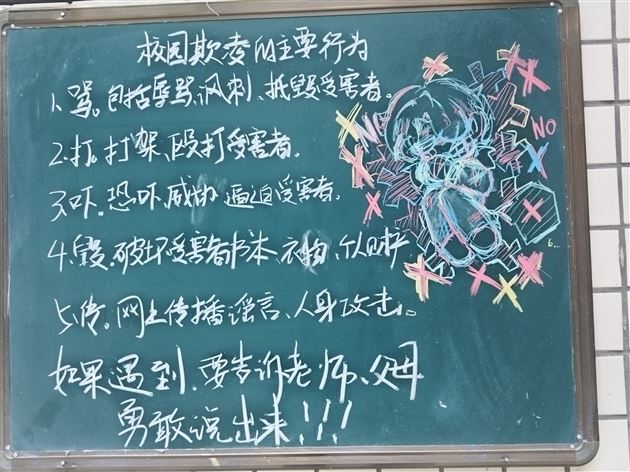 校园欺凌的主要行为
1.骂。包括辱骂、讽刺、抵毁受害者。
2.打。打架、殴打受害者。
3.吓。恐吓、威胁、逼迫受害者。
4.毁。破坏受害者书本、衣物、个人财产
5.传。网上传播谣言、人身攻击。
如果遇到,要告诉老师、父母
勇敢说出来!!!
NO